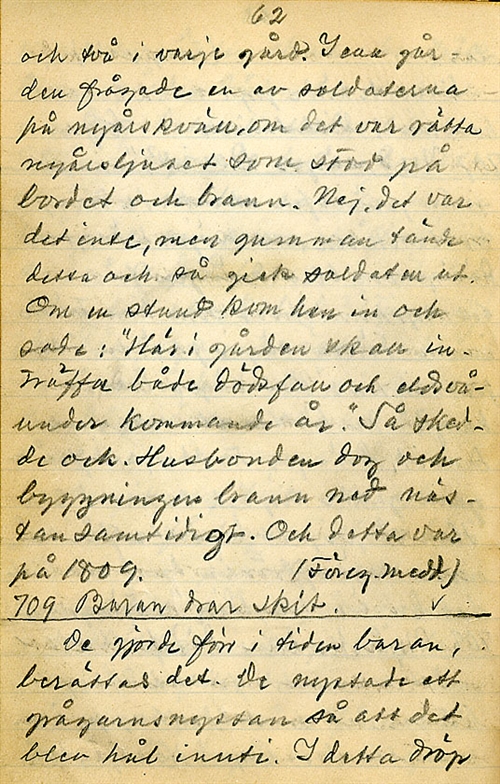 62
och två i varje gård. I ena går-
den frågade en av soldaterna
på nyårskvän, om det var rätta
nyårsljuset som stod på
bordet och brann. Nej, det var
det inte, men gumman tände
detta och så gick soldaten ut.
Om en stund kom han in och
sade: "Här i gården skall in-
träffa både dödsfall och eldsvå-
under kommande år." Så sked-
de ock. Husbonden dog och
byggningen brann ned näs-
tan samtidigt. Och detta var
på 1809. (Föreg. medd.)
709 Baran drar skit. ✓
De gjorde förr i tiden baran,
berättas det. De nystade ett
grågarnsnystan så att det
blev hål inuti. I detta dröp